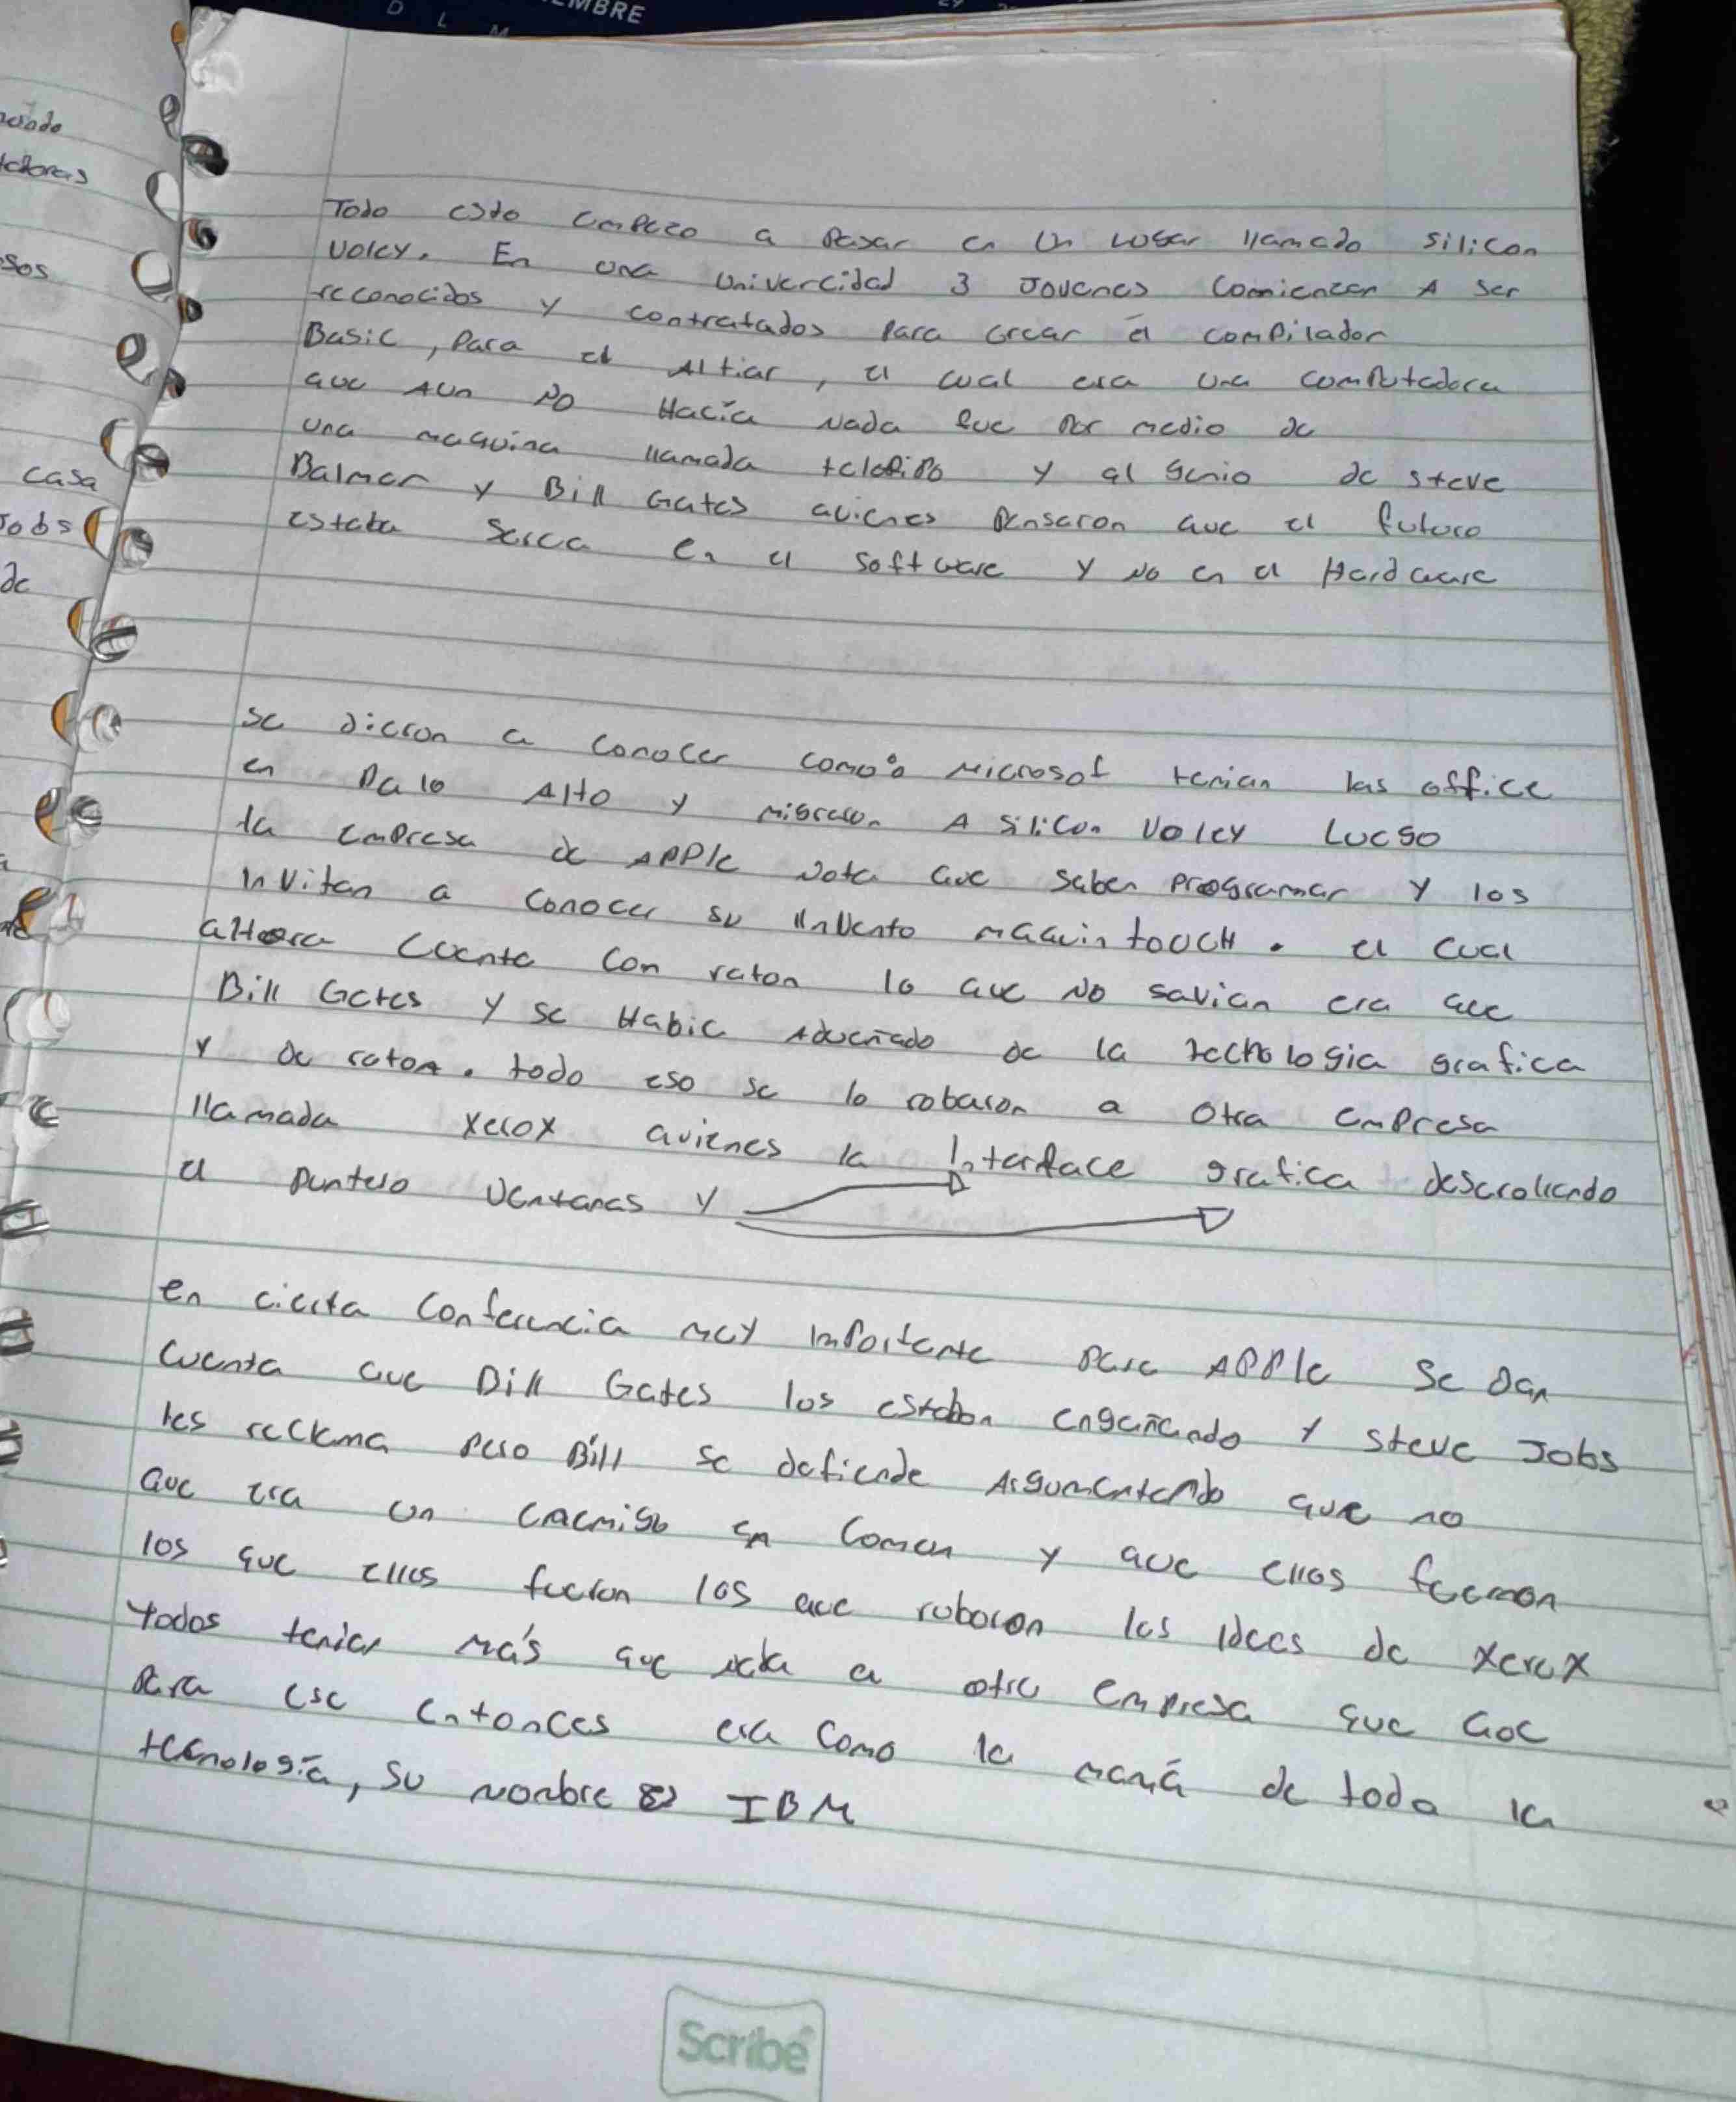 EMBRE
D L M
nciado
tadoras
sos
casa
Jobs
de
Todo esto empezo a pasar en un lugar llamado silicon
Voley. En una univercidad 3 Jovenes comienzan A ser
reconocidos y contratados para crear el compilador
Basic, Para el Altiar, el cual era una computadora
que Aun NO Hacía Nada fue por medio de
una maquina llamada telefipo y al genio de steve
Balmer y Bill Gates quienes pensaron que el futuro
estaba serca en el software y No en el Hardware
se dieron a conocer como: Microsof tenian las office
en Palo Alto y migraron A Silicon Voley Luego
la empresa de APPle Nota que saben programar y los
invitan a conocer su invento maquintoucH. el cual
aHora cuenta con raton lo que No savian era que
Bill Gates y se Habia Adueñado de la tecnologia grafica
y de raton. todo eso se lo robaron a otra empresa
llamada xerox quienes la Interface grafica desarollando
el puntero ventanas y
en cierta conferencia muy importante para APPle se dan
cuenta que Bill Gates los estaban engañando y steve Jobs
les reclama pero Bill se defiende Argumentando que no
que era un enemigo en comun y que ellos fueron
los que ellos fueron los que robaron las ideas de xerox
todos tenian más que nada a otra empresa que que
para ese entonces era como la mamá de toda la
tecnología, su nombre es IBM
Scribe